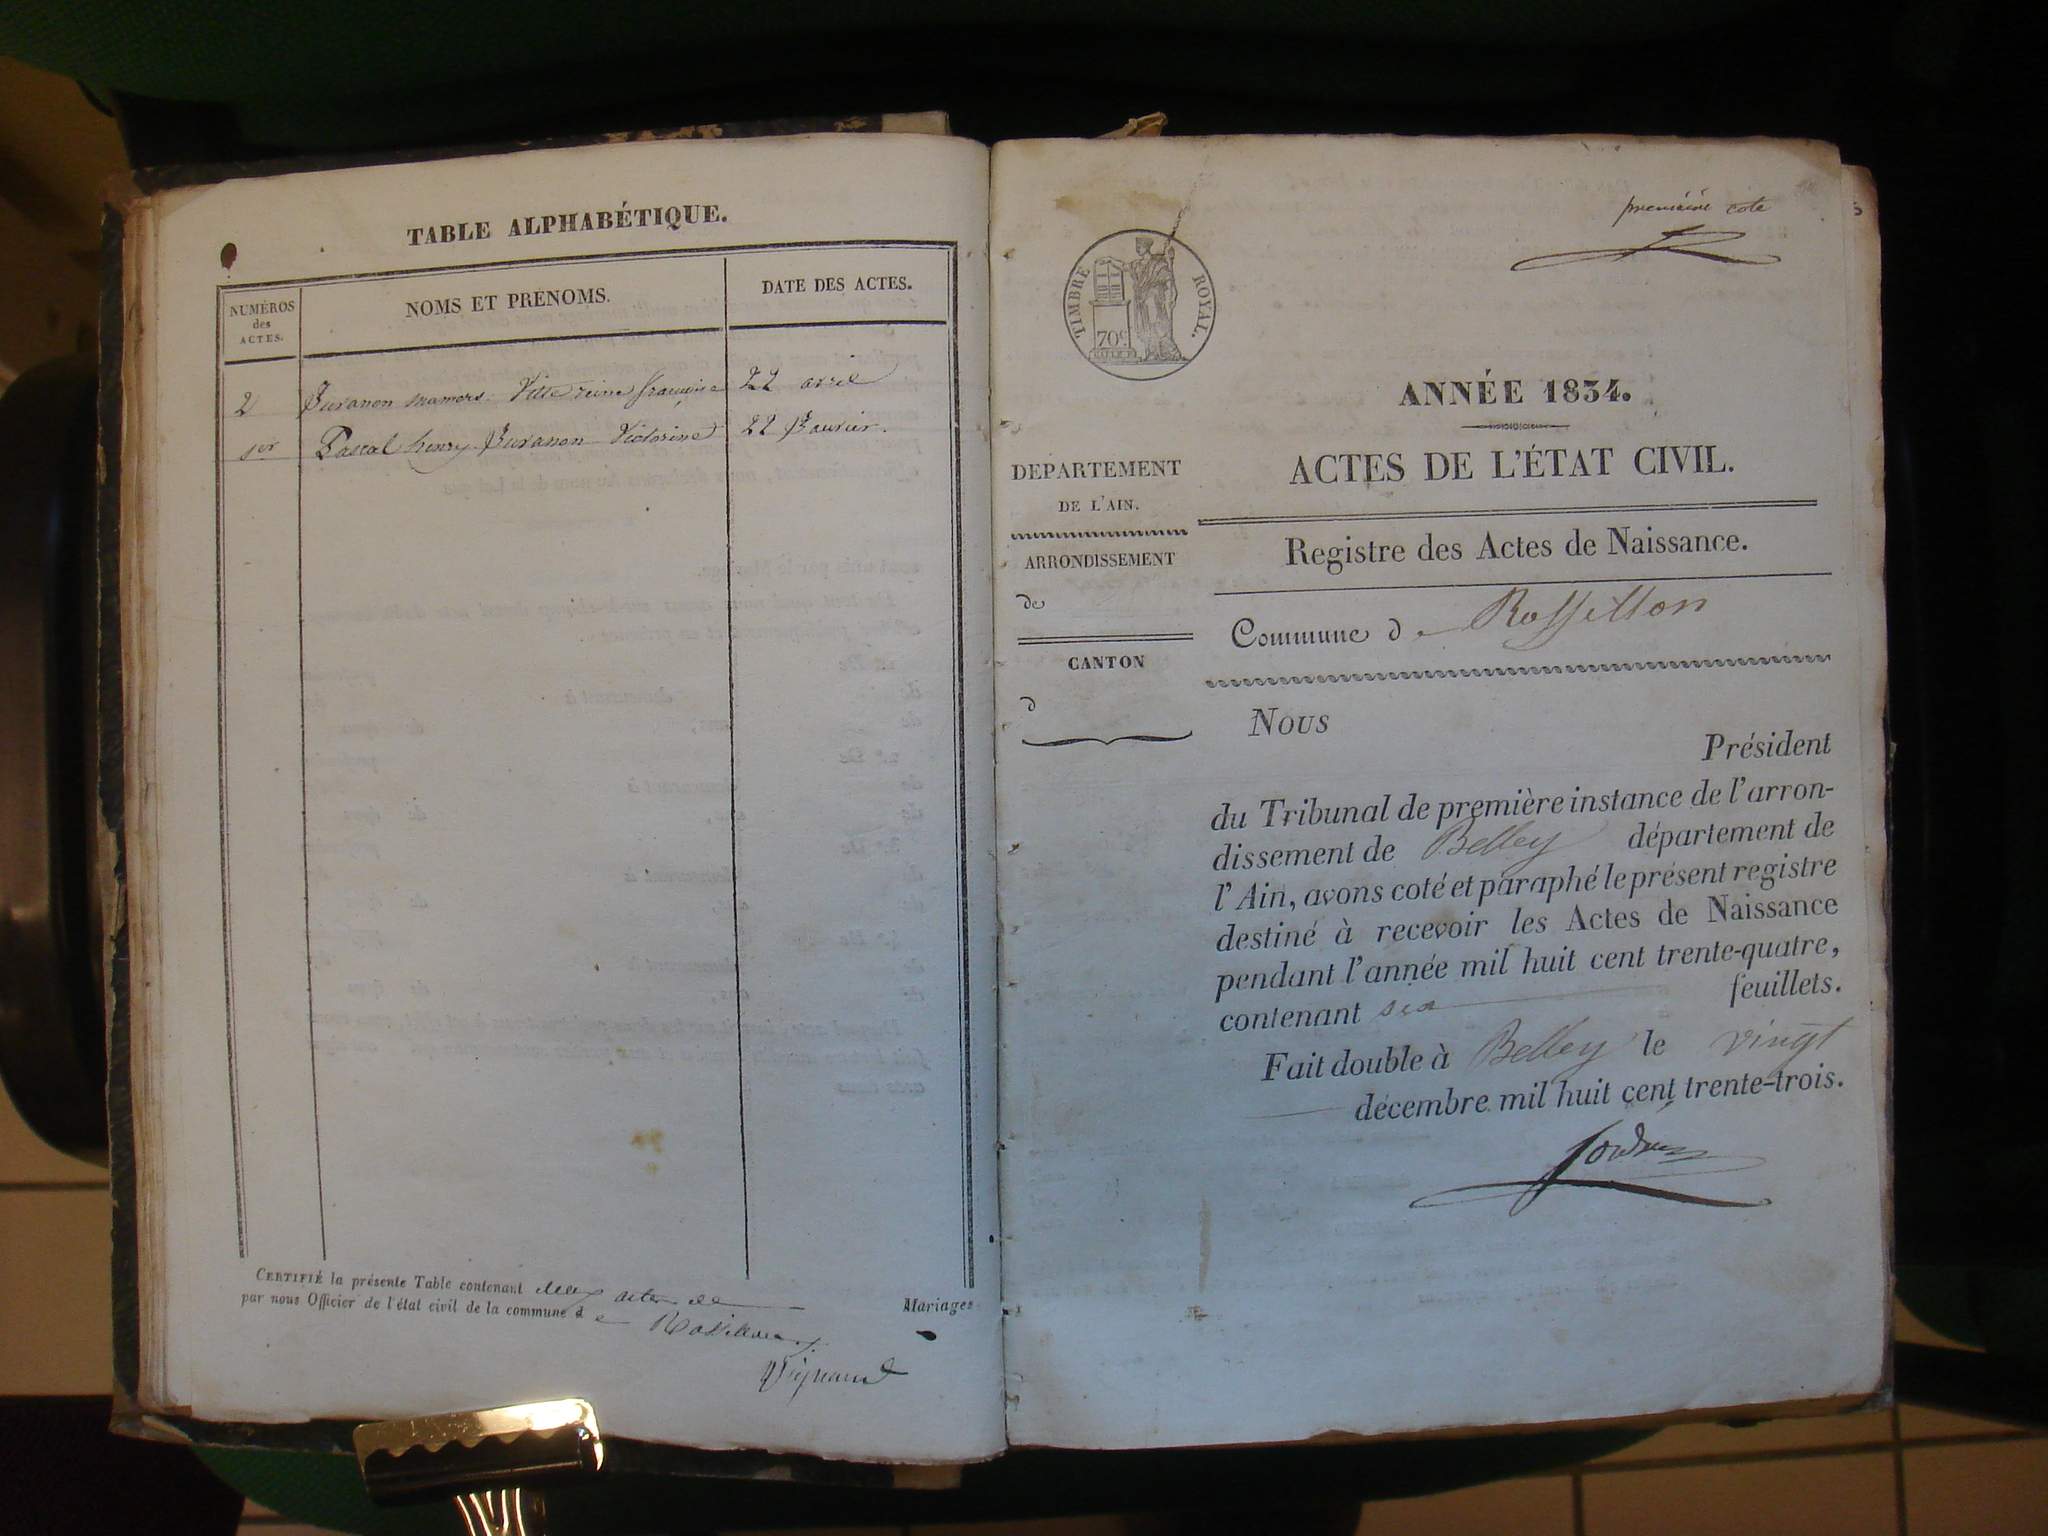 TABLE ALPHABÉTIQUE.
NUMÉROS
des
ACTES.
NOMS ET PRÉNOMS.
DATE DES ACTES.
2 Juvanon mamers Vitte reine françoise 22 avril
1er Pascal henry Juvanon Victorine 22
CERTIFIÉ la présente Table contenant deux actes de Mariages
par nous Officier de l'état civil de la commune de Rossillon
première cote
TIMBRE ROYAL.
70c.
ANNÉE 1834.
ACTES DE L'ÉTAT CIVIL.
DEPARTEMENT
DE L'AIN.
ARRONDISSEMENT
de
CANTON
d
Registre des Actes de Naissance.
Commune de Rossillon
Nous
Président
du Tribunal de première instance de l'arron-
dissement de Belley département de
l'Ain, avons coté et paraphé le présent registre
destiné à recevoir les Actes de Naissance
pendant l'année mil huit cent trente-quatre,
contenant six feuillets.
Fait double à Belley le vingt
décembre mil huit cent trente-trois.